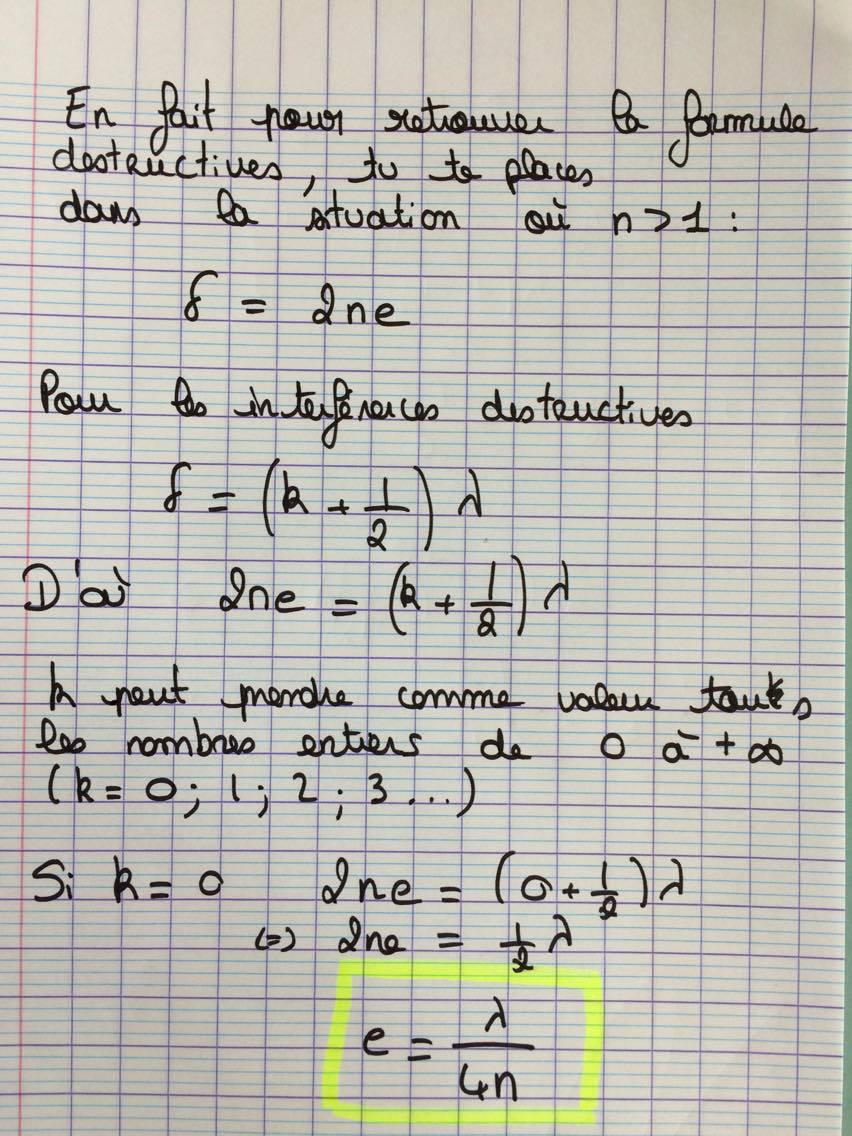 En fait pour retrouver la formule
destructives, tu te places
dans la situation où n > 1 :
δ = 2ne
Pour les interférences destructives
δ = (k + 1/2) λ
D'où 2ne = (k + 1/2) λ
k peut prendre comme valeur toutes
les nombres entiers de 0 à +∞
(k = 0 ; 1 ; 2 ; 3 ...)
Si k = 0 2ne = (0 + 1/2) λ
(=) 2ne = 1/2 λ
e = λ/4n